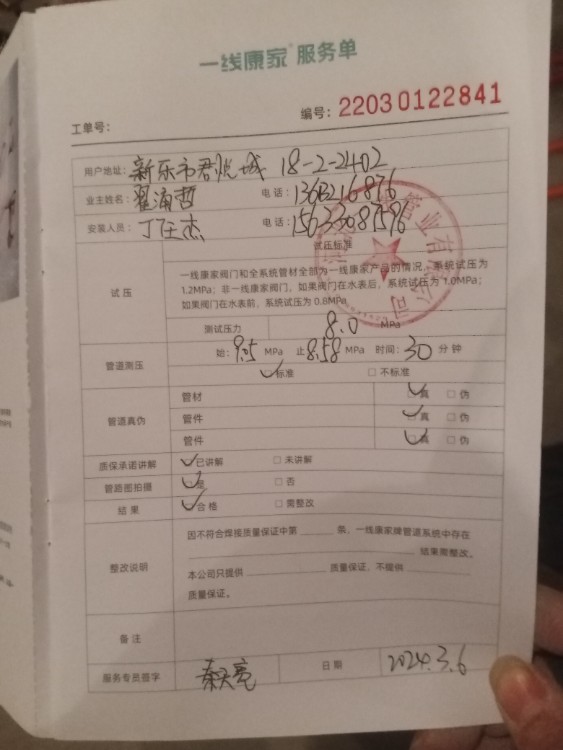 一线康家®服务单
工单号：
编号：22030122841
用户地址：新乐市君悦城 18-2-2402
业主姓名：翟浦哲 电话：
安装人员： 电话：15633087596
试压标准
试压
一线康家阀门和全系统管材全部为一线康家产品的情况，系统试压为
1.2MPa；非一线康家阀门，如果阀门在水表后，系统试压为1.0MPa；
如果阀门在水表前，系统试压为0.8MPa
测试压力 8.0 MPa
管道测压
始：9.5 MPa 止 8.58 MPa 时间：30 分钟
标准 不标准
管道真伪
管材 真 伪
管件 真 伪
管件 真 伪
质保承诺讲解 已讲解 未讲解
管路图拍摄 是 否
结果 合格 需整改
整改说明
因不符合焊接质量保证中第 条，一线康家牌管道系统中存在
结果需整改。
本公司只提供 质量保证，不提供
质量保证。
备注
服务专员签字 秦天亮 日期 2024.3.6